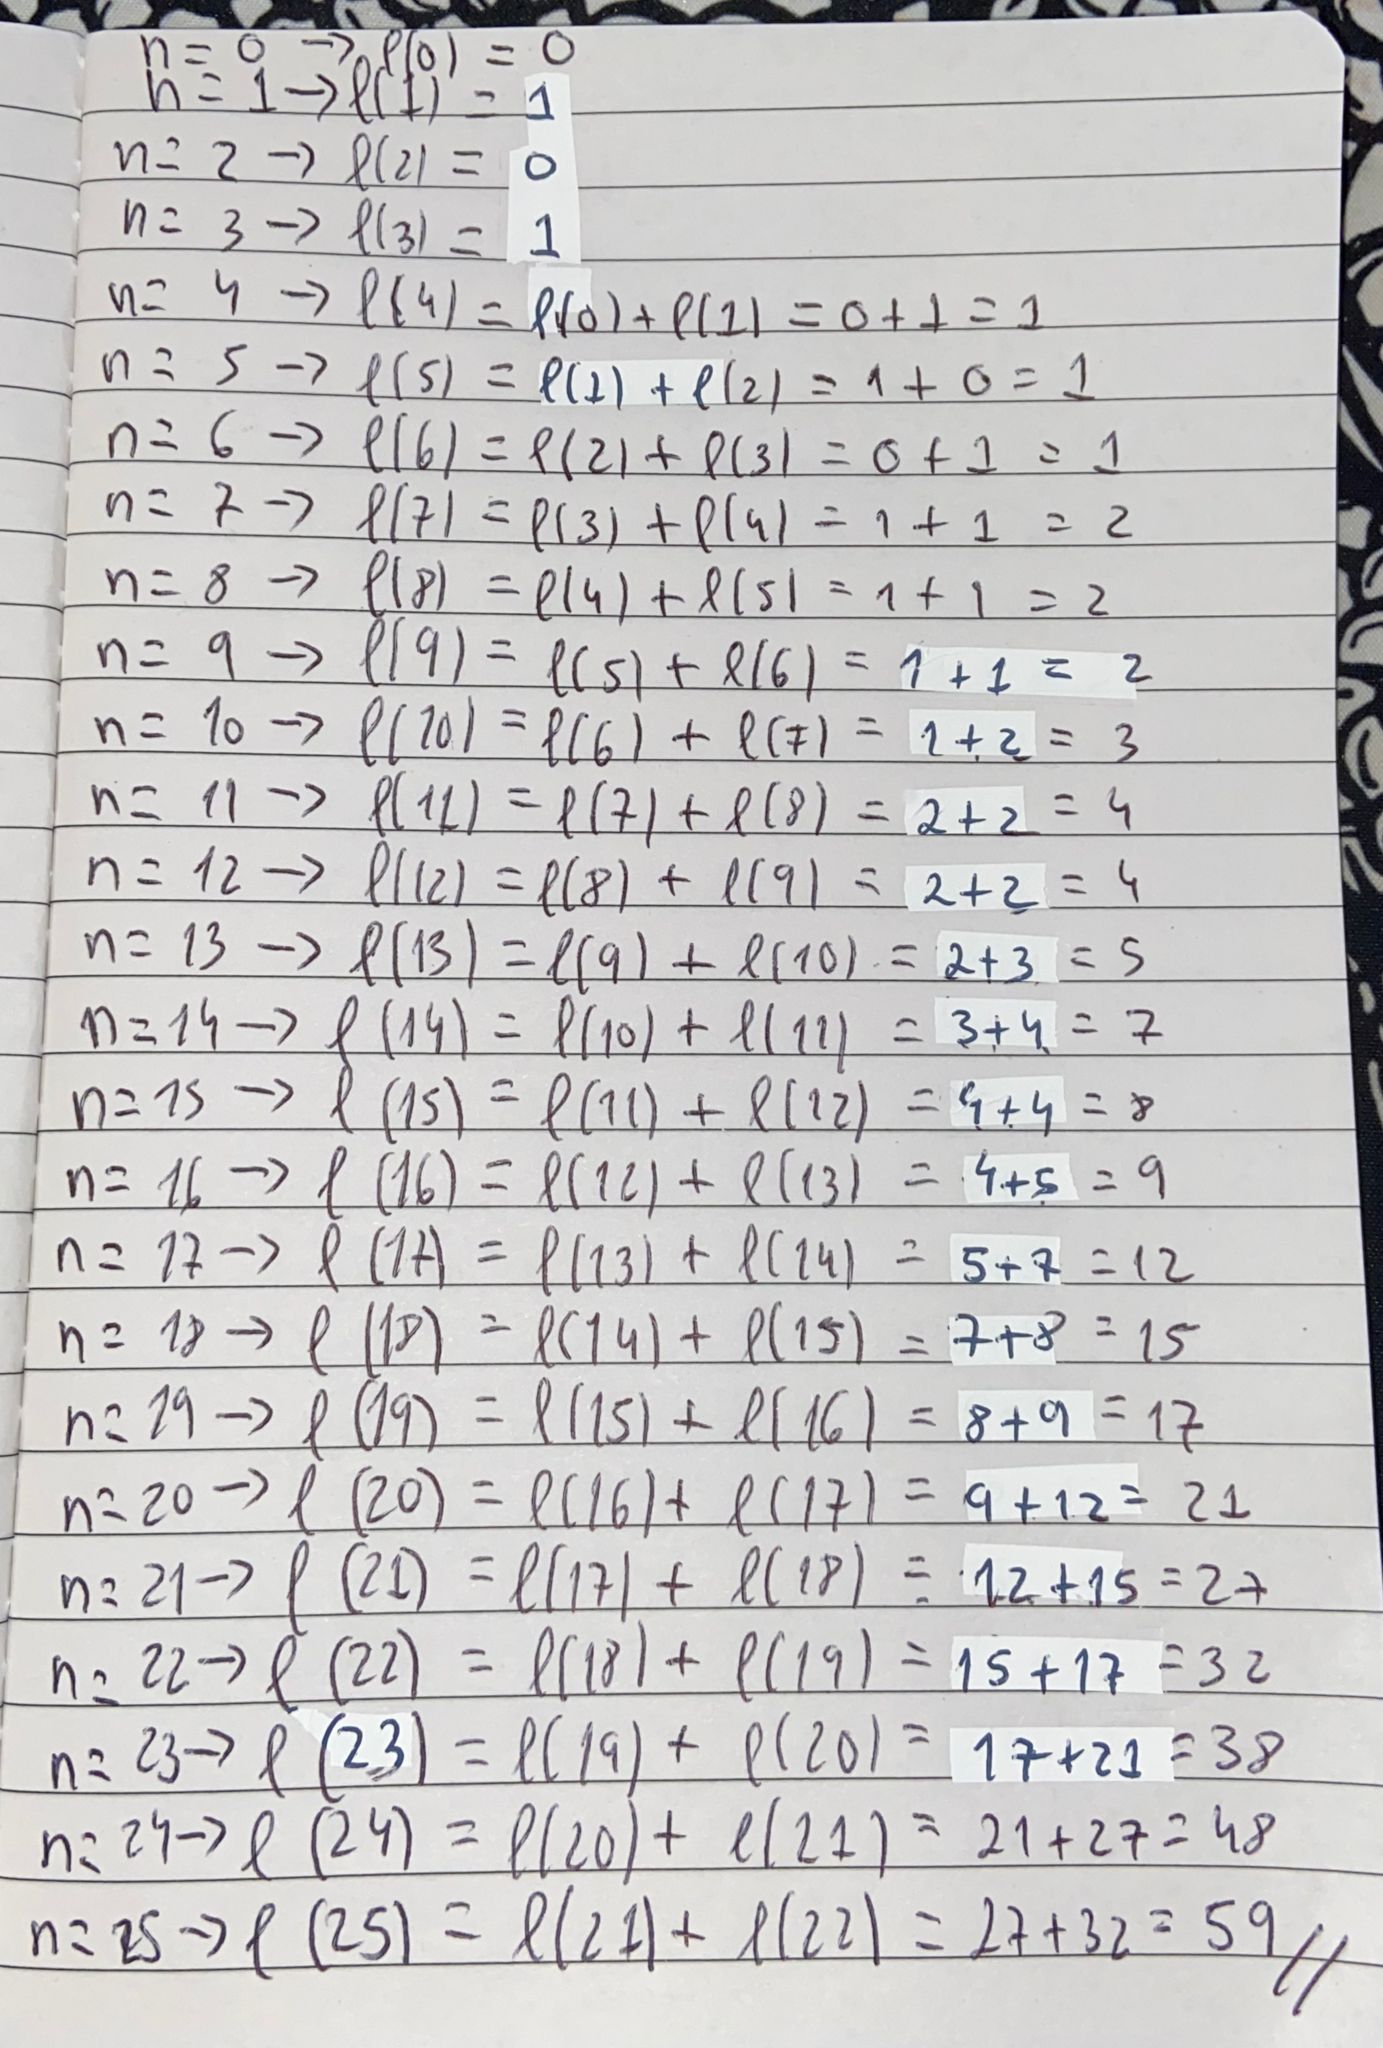 n = 0 → l(0) = 0
n = 1 → l(1) = 1
n = 2 → l(2) = 0
n = 3 → l(3) = 1
n = 4 → l(4) = l(0) + l(1) = 0 + 1 = 1
n = 5 → l(5) = l(1) + l(2) = 1 + 0 = 1
n = 6 → l(6) = l(2) + l(3) = 0 + 1 = 1
n = 7 → l(7) = l(3) + l(4) = 1 + 1 = 2
n = 8 → l(8) = l(4) + l(5) = 1 + 1 = 2
n = 9 → l(9) = l(5) + l(6) = 1 + 1 = 2
n = 10 → l(10) = l(6) + l(7) = 1 + 2 = 3
n = 11 → l(11) = l(7) + l(8) = 2 + 2 = 4
n = 12 → l(12) = l(8) + l(9) = 2 + 2 = 4
n = 13 → l(13) = l(9) + l(10) = 2 + 3 = 5
n = 14 → l(14) = l(10) + l(11) = 3 + 4 = 7
n = 15 → l(15) = l(11) + l(12) = 4 + 4 = 8
n = 16 → l(16) = l(12) + l(13) = 4 + 5 = 9
n = 17 → l(17) = l(13) + l(14) = 5 + 7 = 12
n = 18 → l(18) = l(14) + l(15) = 7 + 8 = 15
n = 19 → l(19) = l(15) + l(16) = 8 + 9 = 17
n = 20 → l(20) = l(16) + l(17) = 9 + 12 = 21
n = 21 → l(21) = l(17) + l(18) = 12 + 15 = 27
n = 22 → l(22) = l(18) + l(19) = 15 + 17 = 32
n = 23 → l(23) = l(19) + l(20) = 17 + 21 = 38
n = 24 → l(24) = l(20) + l(21) = 21 + 27 = 48
n = 25 → l(25) = l(21) + l(22) = 27 + 32 = 59 //